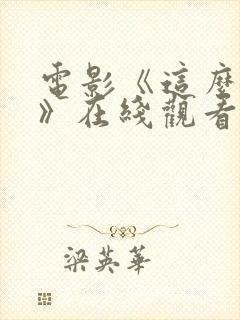 電影《這麼
》在綫觀看
梁英華